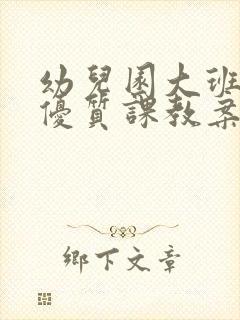 幼兒園大班
優質課教案
鄉下文章